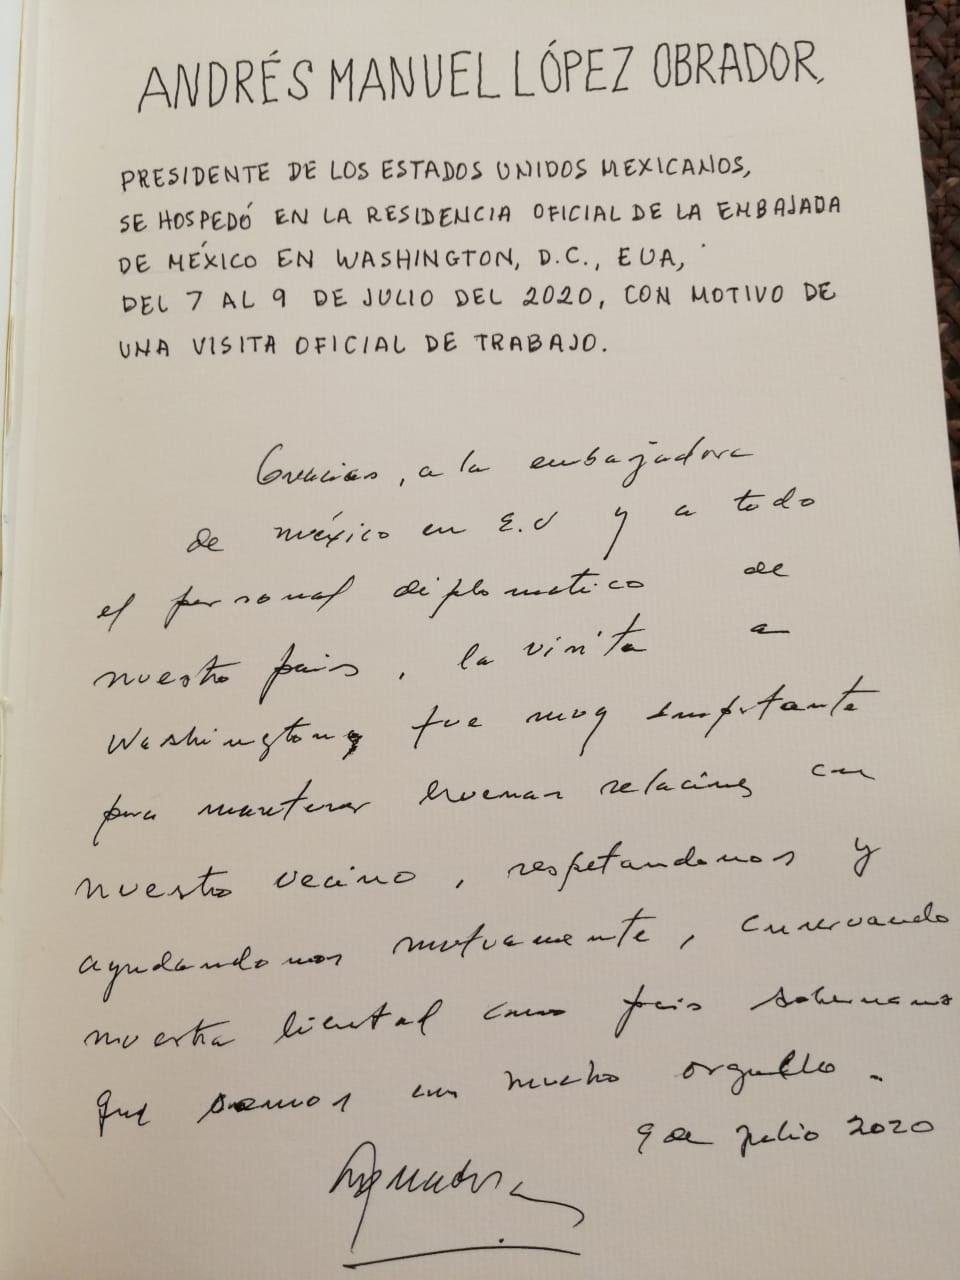 ANDRÉS MANUEL LÓPEZ OBRADOR,
PRESIDENTE DE LOS ESTADOS UNIDOS MEXICANOS,
SE HOSPEDÓ EN LA RESIDENCIA OFICIAL DE LA EMBAJADA
DE MÉXICO EN WASHINGTON, D.C., EUA,
DEL 7 AL 9 DE JULIO DEL 2020, CON MOTIVO DE
UNA VISITA OFICIAL DE TRABAJO.
Gracias, a la embajadora
de méxico en E.U y a todo
el personal diplomatico de
nuestro pais, la visita a
Washington fue muy importante
para mantener buenas relaciones con
nuestro vecino, respetandonos y
ayudandonos mutuamente, conservando
nuestra libertad como pais soberano
que somos con mucho orgullo.
9 de julio 2020